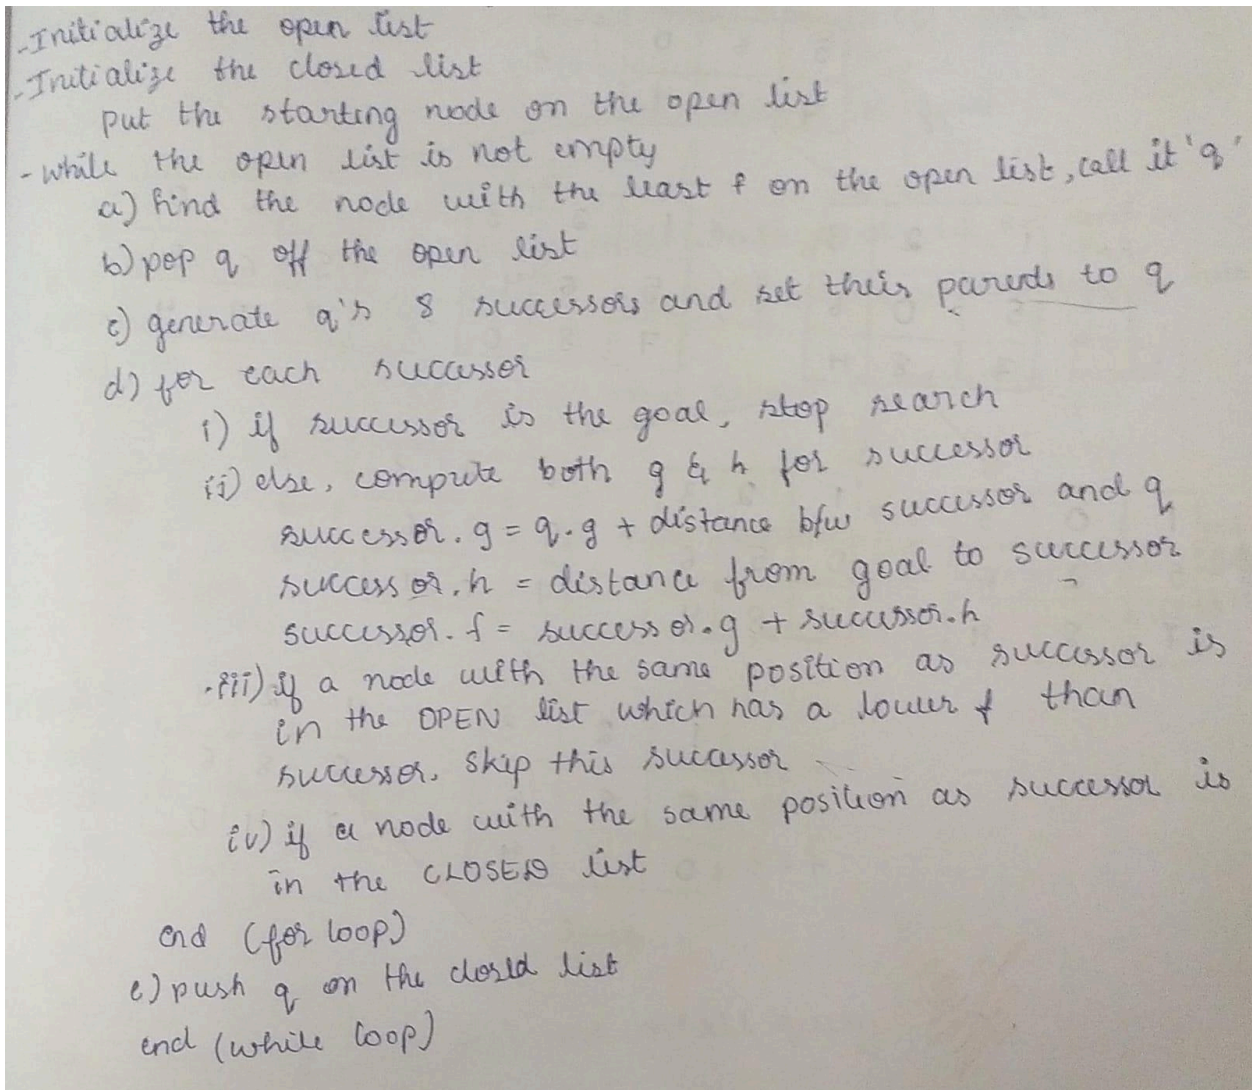 - Initialize the open list
- Initialize the closed list
put the starting node on the open list
- while the open list is not empty
a) find the node with the least f on the open list, call it 'q'
b) pop q off the open list
c) generate q's 8 successors and set their parents to q
d) for each successor
i) if successor is the goal, stop search
ii) else, compute both g & h for successor
successor.g = q.g + distance b/w successor and q
successor.h = distance from goal to successor
successor.f = successor.g + successor.h
iii) if a node with the same position as successor is
in the OPEN list which has a lower f than
successor, skip this successor
iv) if a node with the same position as successor is
in the CLOSED list
end (for loop)
e) push q on the closed list
end (while loop)